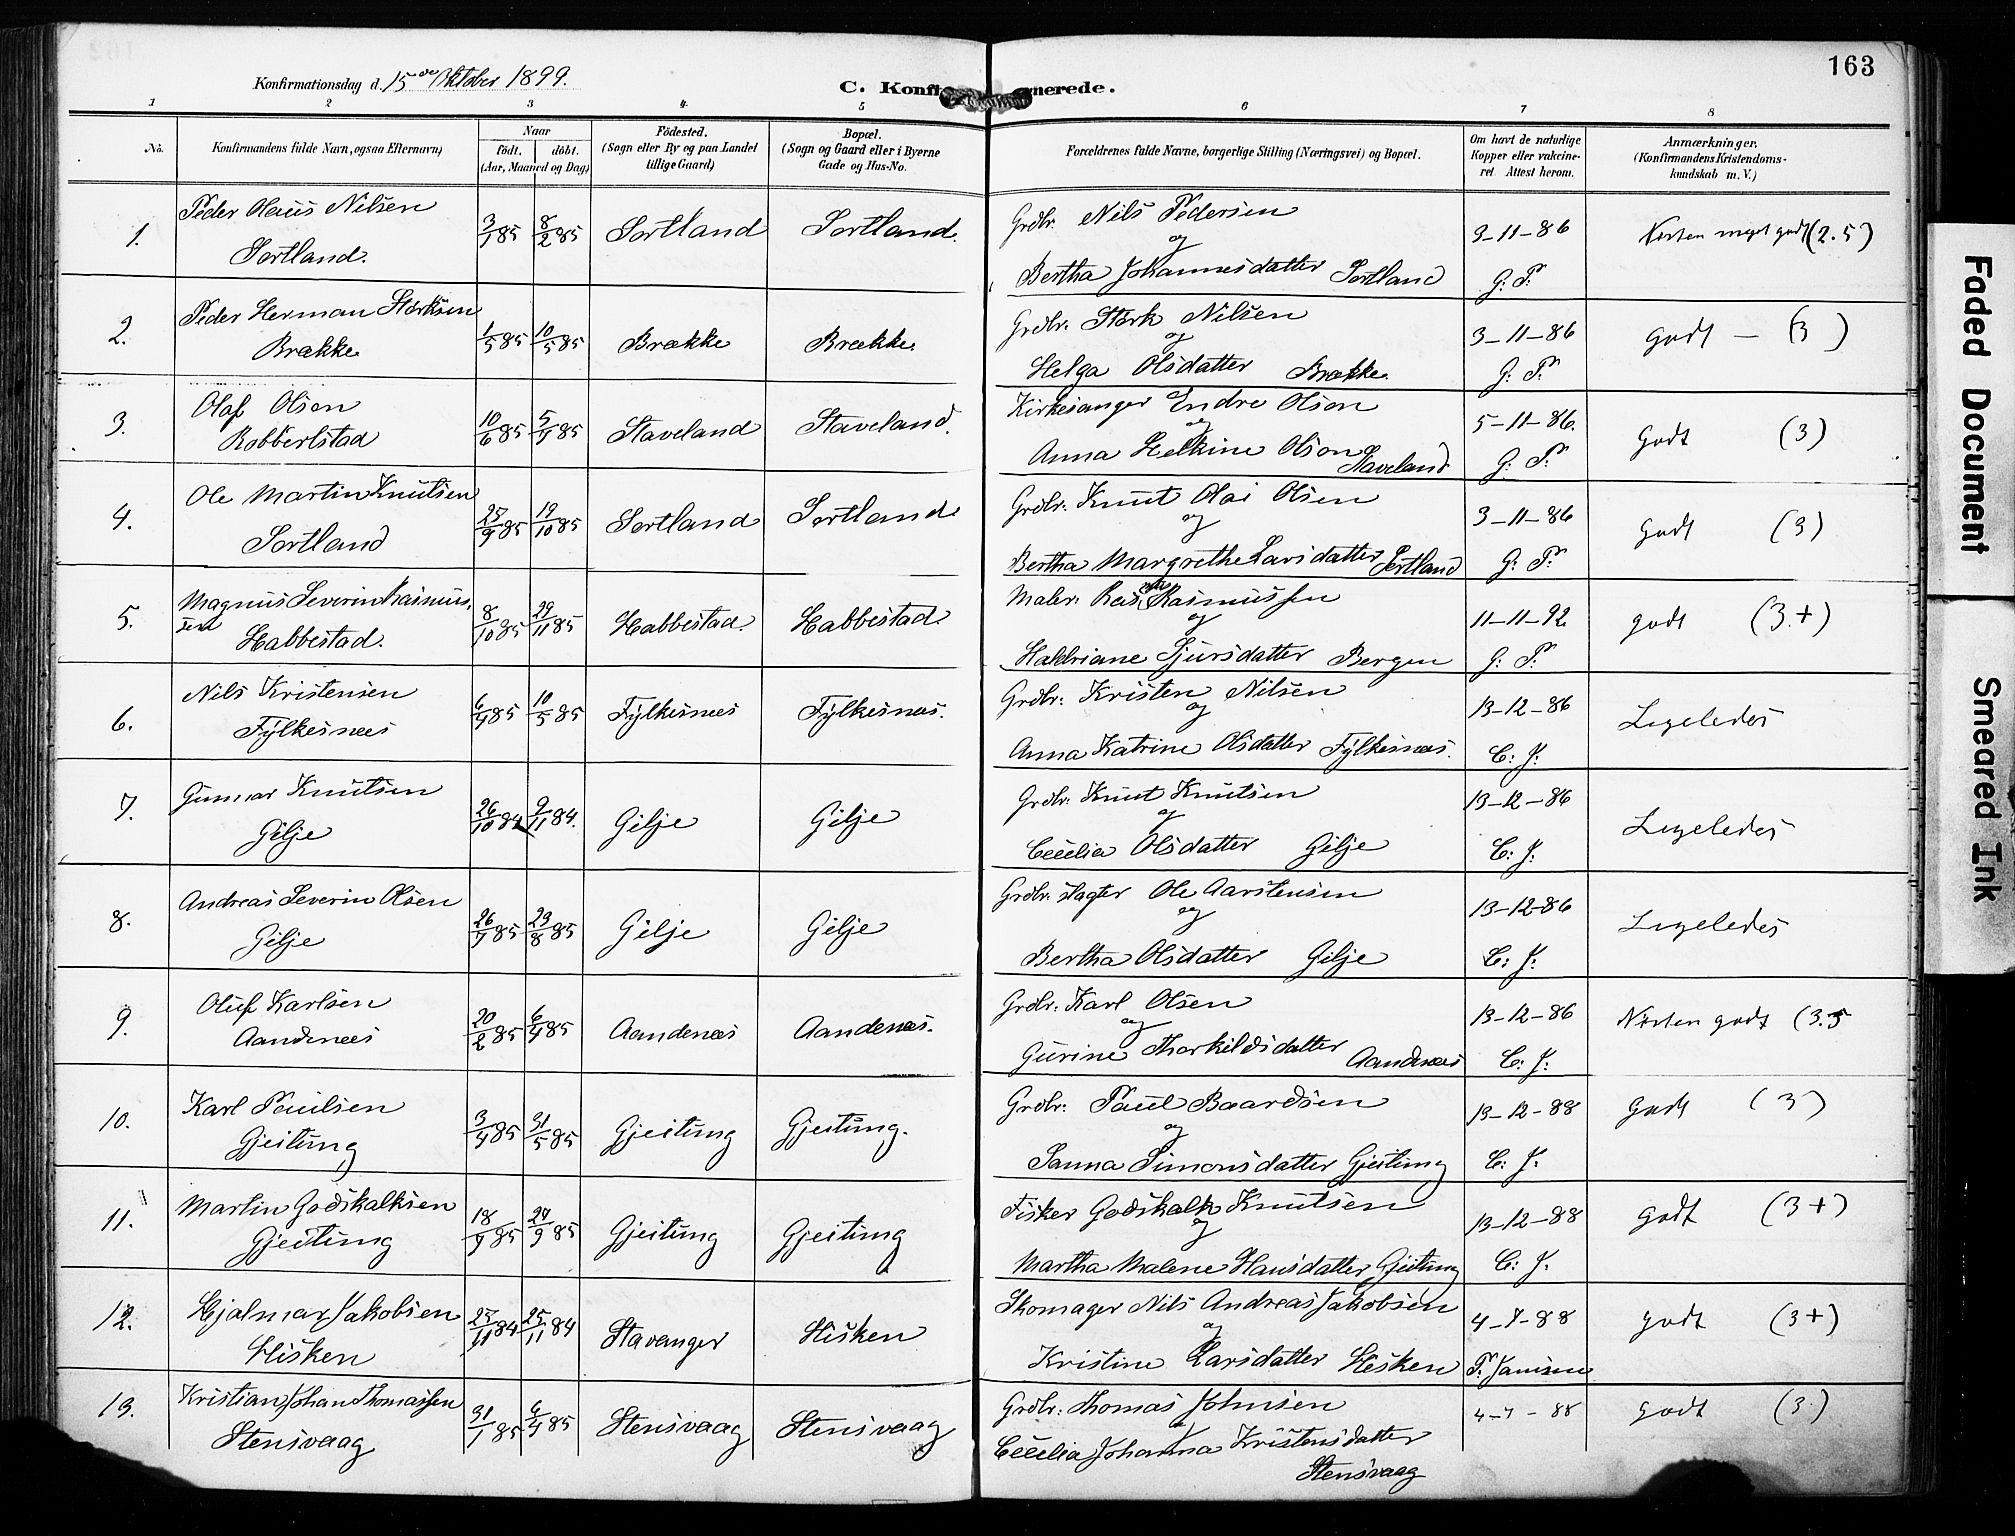 163
Konfirmationsdag d. 15de Oktober 1899.
C. Konfi nerede.
1 2 3 4 5 6 7 8
No.
Konfirmandens fulde Navn, ogsaa Efternavn,
Naar
født. døbt.
(Aar, Maaned og Dag)
Fødested.
(Sogn eller By og paa Landet
tillige Gaard)
Bopæl.
(Sogn og Gaard eller i Byerne
Gade og Hus-No.
Forældrenes fulde Navne, borgerlige Stilling (Næringsvei) og Bopæl.
Om havt de naturlige
Kopper eller vakcine-
ret. Attest herom.
Anmærkninger.
(Konfirmandens Kristendoms-
kundskab m. V.)
1. Peder Olaus Nilsen Sortland. 3/1 85 8/2 85 Sortland Sortland.
Grdbr. Nils Pedersen og Bertha Johannesdatter Sortland 3-11-86 G. P. Næsten meget godt (2.5)
2. Peder Herman Størksen Brække 1/5 85 10/5 85 Brække Brække.
Grdbr. Størk Nilsen og Helga Olsdatter Brække. 3-11-86 G. P. godt - (3)
3. Olaf Olsen Robberstad 10/6 85 5/7 85 Staveland Staveland.
Kirkesanger Endre Olson og Anna Helkine Olson Staveland 5-11-86. G. P. Godt (3)
4. Ole Martin Knutsen Sortland 25/9 85 19/10 85 Sortland Sortland
Grdbr. Knut Olai Olsen og Bertha Margrethe Larsdatter Sortland 3-11-86 G: P: Godt (3)
5. Magnus Severin Rasmussen Habbestad. 8/10 85 29/11 85 Habbestad. Habbestad
Maler. Rasmus Rasmussen og Haldriane Sjursdatter Bergen 11-11-92 G: P: godt (3.+)
6. Nils Kristensen Fylkesnæs 6/4 85 10/5 85 Fylkesnæs Fylkesnæs.
Grdbr: Kristen Nilsen og Anna Katrine Olsdatter Fylkesnæs. 13-12-86 C: J: Ligeledes
7. Gunnar Knutsen Gilje 26/10 84 9/11 84. Gilje Gilje
Grdbr: Knut Knutsen og Cecilia Olsdatter Gilje 13-12-86 C: J: Ligeledes
8. Andreas Severin Olsen Gilje 26/7 85 23/8 85 Gilje Gilje
Grdbr. slagter Ole Aarstensen og Bertha Olsdatter Gilje 13-12-86 C: J: Ligeledes
9. Oluf Karlsen Aandenæs 20/2 85 6/4 85 Aandenæs Aandenæs.
Grdbr: Karl Olsen og Gurine Thorkildsdatter Aandenæs 13-12-86 C: J: Næsten godt (3.5
10. Karl Paulsen Gjeitung 3/4 85 31/5 85 Gjeitung Gjeitung.
Grdbr: Paul Baardsen og Sanna Simonsdatter Gjeitung 13-12-88 C: J: Godt (3)
11. Martin Godskalksen Gjeitung 18/7 85 27/9 85 Gjeitung Gjeitung
Fisker Godskalk Knutsen og Martha Malene Hansdatter Gjeitung 13-12-88 C: J. godt (3+)
12. Hjalmar Jakobsen Hisken 23/11 84 25/11 84 Stavanger Hisken
Skomager Nils Andreas Jakobsen og Kristine Larsdatter Hisken 4-7-88 P. Jansen godt (3+)
13. Kristian Johan Thomassen Stensvaag 31/1 85 6/4 85 Stensvaag Stensvaag
Grdbr: Thomas Johnsen og Cecelia Johanna Kristensdatter Stensvaag 4-7-88 godt (3.)
Faded Document
Smeared Ink